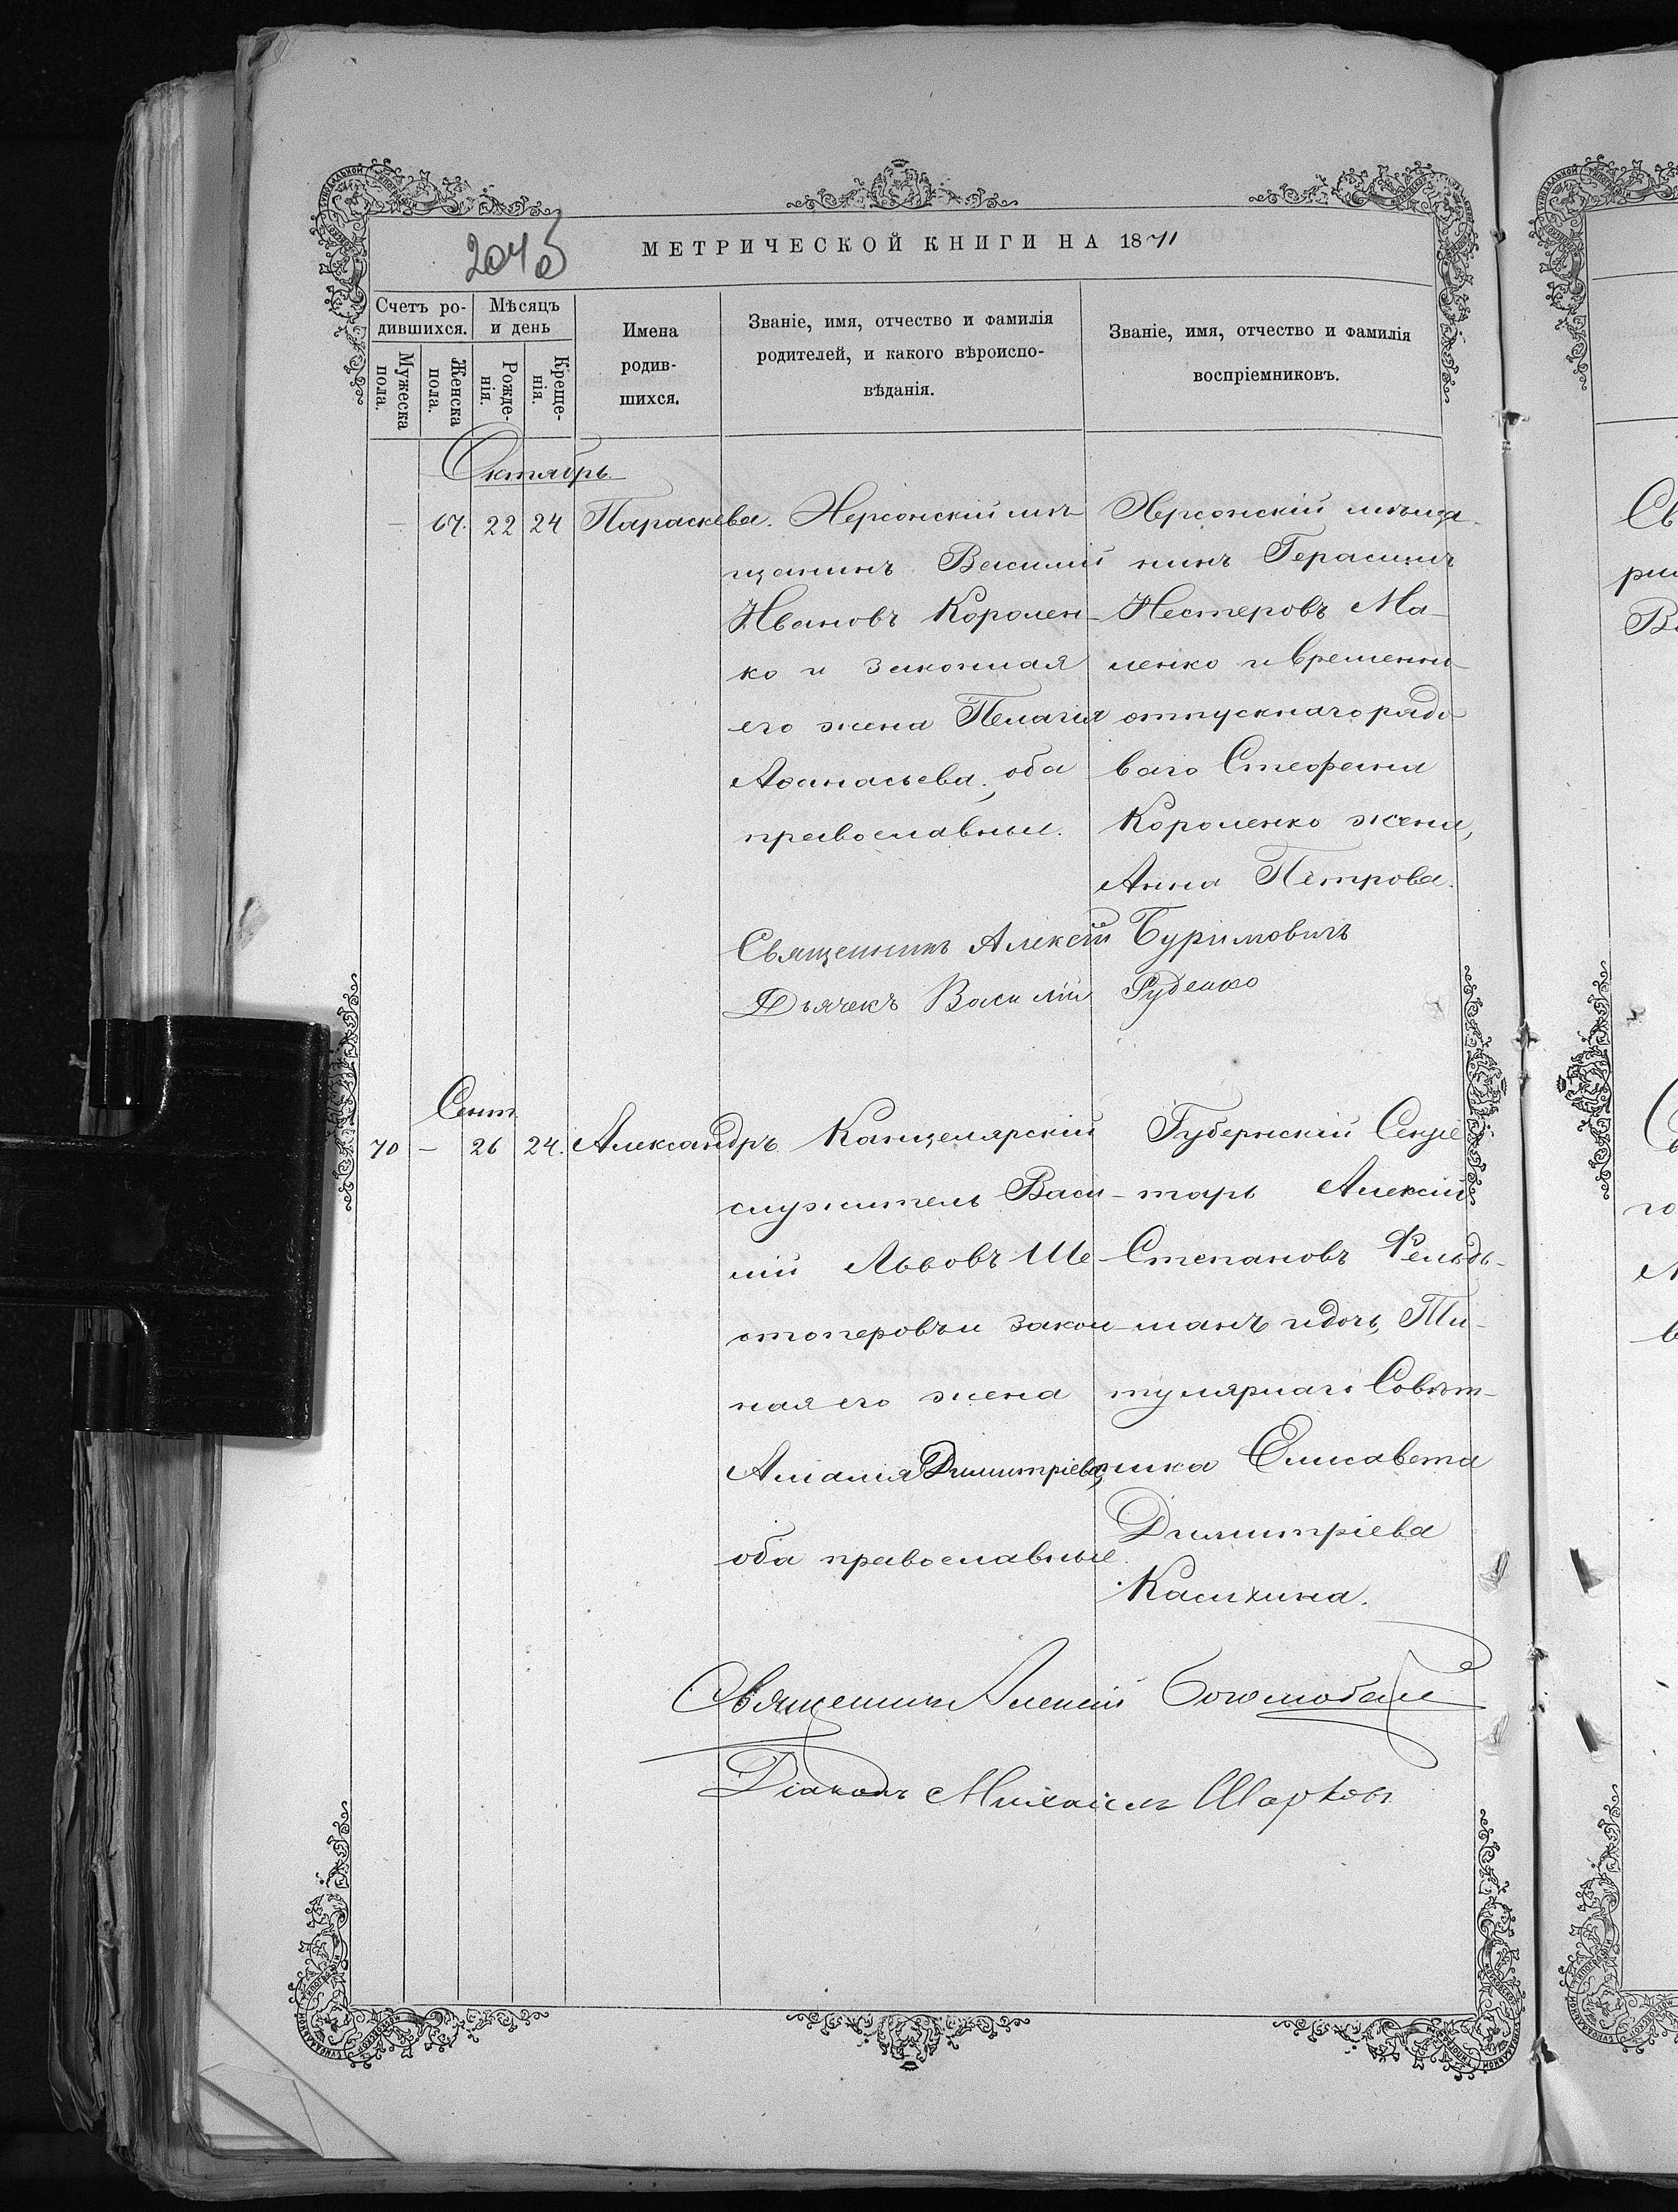 МЕТРИЧЕСКОЙ КНИГИ НА 1871
Счетъ ро-
дившихся.
Мѣсяцъ
и день
Мужеска
пола.
Женска
пола.
Рожде-
нія.
Креще-
нія.
Имена
родив-
шихся.
Званіе, имя, отчество и фамилія
родителей, и какого вѣроиспо-
вѣданія.
Званіе, имя, отчество и фамилія
воспріемниковъ.
Октябрь.
— 67. 22 24 Параскева.
Херсонскій мѣ-
щанинъ Василій
Ивановъ Королен-
ко и законная
его жена Пелагія
Аѳанасьева, оба
православные.
Херсонскій мѣща-
нинъ Герасимъ
Нестеровъ Ма-
ленко и временно
отпускнаго рядо-
ваго Стефана
Короленко жена,
Анна Петрова.
Священникъ Алексій Буримовичъ
Дьячекъ Василій Руденко
Сент.
70 — 26 24. Александръ
Канцелярскій
служитель Васи-
лій Львовъ Ше-
стоперовъ и закон-
ная его жена
Амалія Димитріева,
оба православные.
Губернскій Секре-
тарь Алексій
Степановъ Фельдь-
манъ и дочь Ти-
тулярнаго Совѣт-
ника Елисавета
Димитріева
Касихина.
Священникъ Алексій
Діаконъ Михаилъ Шарковъ